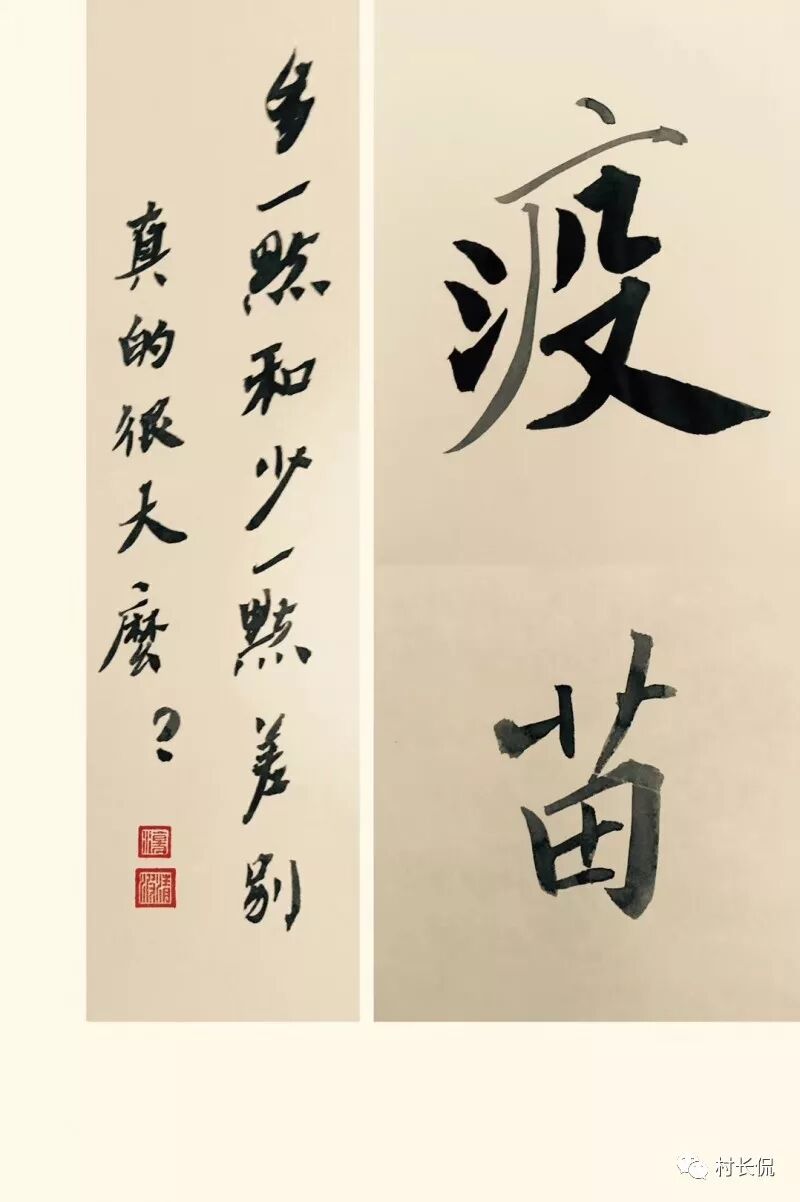 疫苗
多一點和少一點差別
真的很大麼?
村长侃